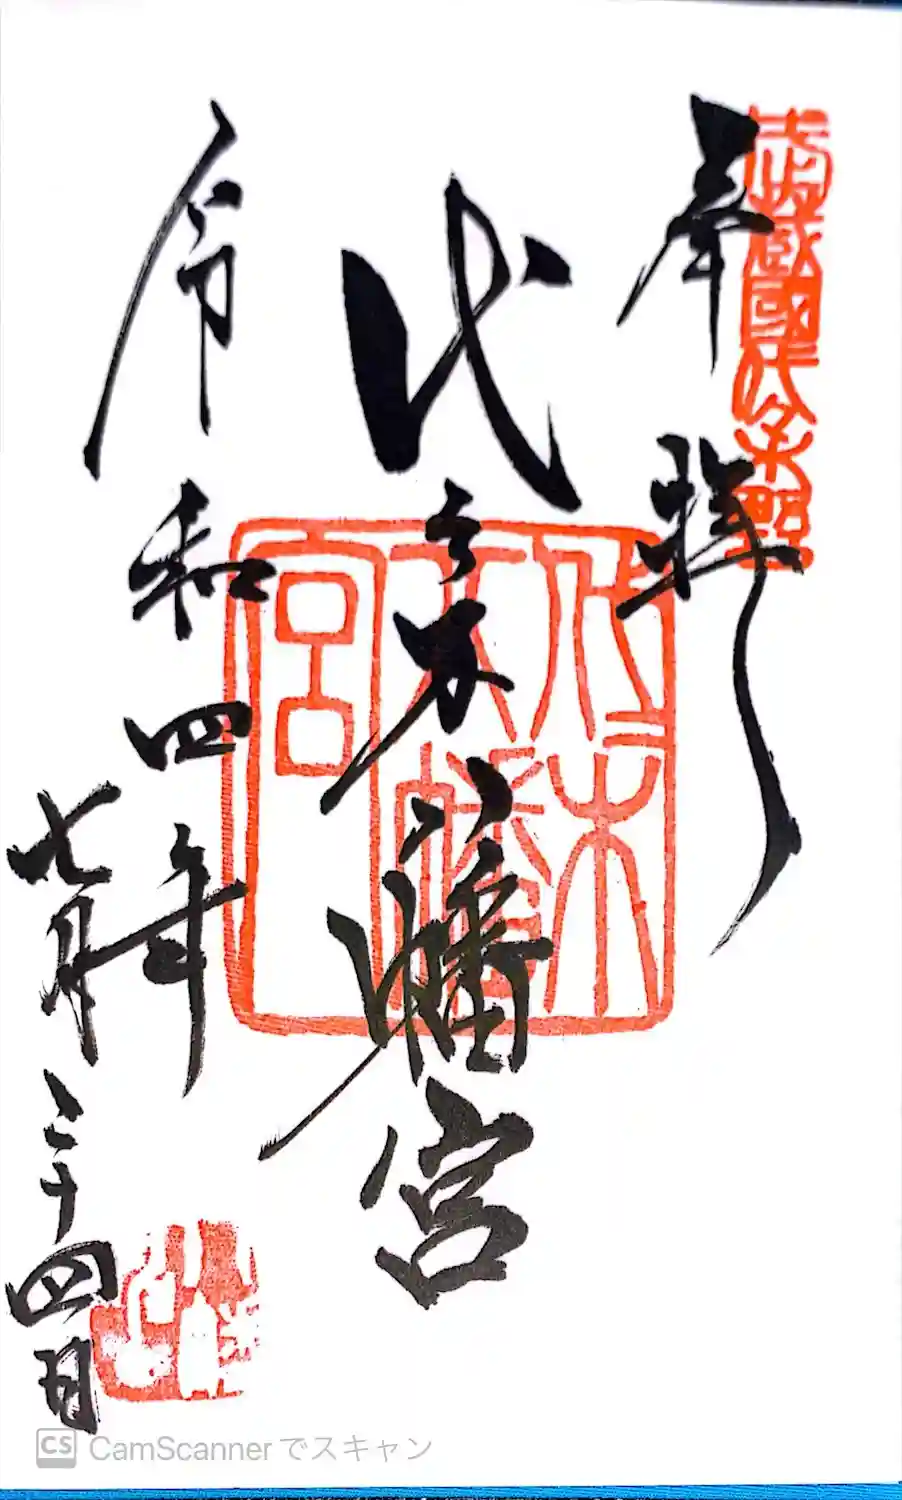 武蔵國代々木野
奉拝
代々木八幡宮
代々木
八幡
宮
令和四年
七月二十四日
CS CamScannerでスキャン